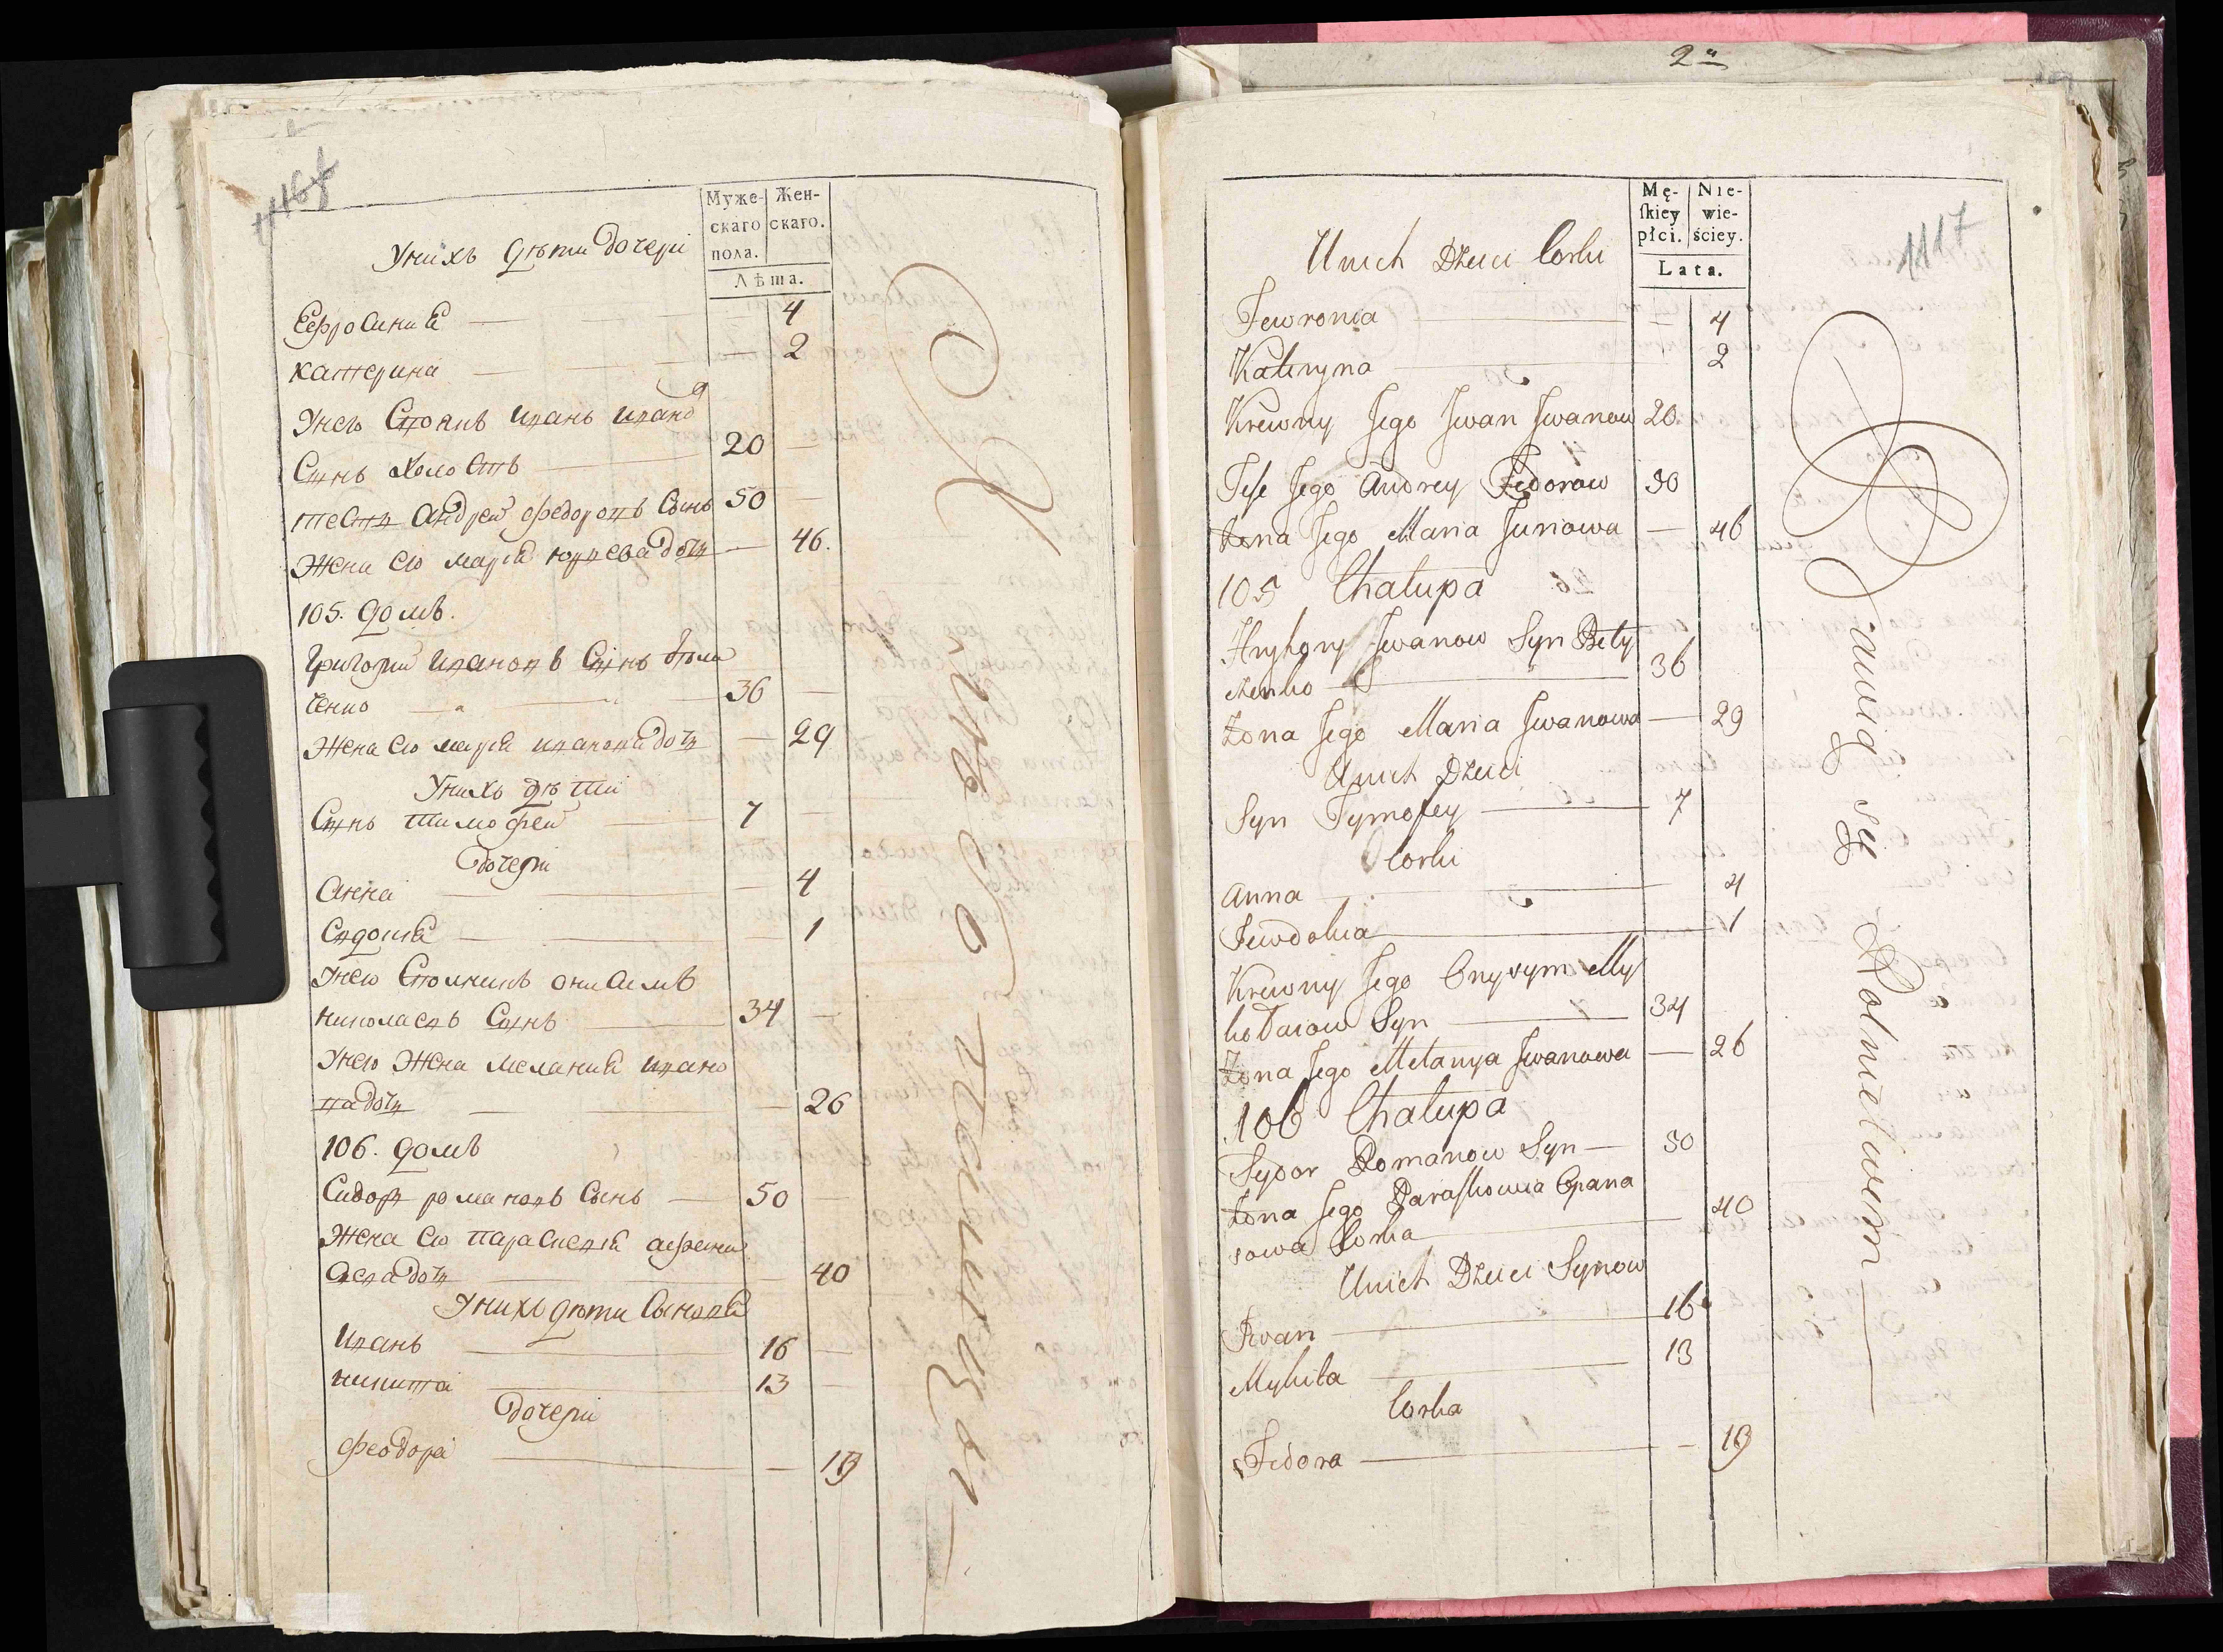 1116
Муже-
скаго
пола.
Жен-
скаго.
Лѣта.
У нихъ дѣти дочери
Ефросиния — 4
Катерина — 2
У него Своякъ Иванъ Иванов
Сынъ холостъ — 20 —
тесть Андрей Федоровъ Сынъ 50 —
Жена его Мария Юрьева дочь — 46.
105. Домъ.
Григорий Ивановъ Сынъ
ченко — 36 —
Жена его Мария Иванова дочь — 29
У нихъ дѣти
Сынъ Тимофей — 7 —
Дочери
Анна — 4
Євдокия — 1
У него Своякъ Онисимъ
Николаевъ Сынъ — 34 —
У него Жена Мелания Ивано
ва дочь — 26
106. Домъ
Сидоръ Романовъ Сынъ — 50 —
Жена его Параскевия Афана
сиева дочь — 40
У нихъ дѣти Сыновья
Иванъ — 16 —
Никита — 13 —
Дочери
Феодора — 19
2
1117
Mę-
ſkiey
płci.
Nie-
wie-
ściey.
Lata.
U nich Dzieci Corki
Fewronia — 4
Kateryna — 2
Krewny Jego Jwan Jwanow 20
Teść Jego Andrey Fedorow 50
Żona Jego Maria Juriowa — 46
105 Chałupa
Hryhory Jwanow Syn Bety
czenko — 36
Żona Jego Maria Jwanowa — 29
U nich Dzieci
Syn Tymofey — 7
Corki
Anna — 4
Jewdokia — 1
Krewny Jego Onyzym My
kołaiow Syn — 34
Żona Jego Melanya Jwanowa — 26
106 Chałupa
Sydor Romanow Syn — 50
Żona Jego Paraſkowia Opana
sowa Corka — 40
U nich Dzieci Synow
Jwan — 16
Mykita — 13
Corka
Fedora — 19
Bawią się Rolnictwem